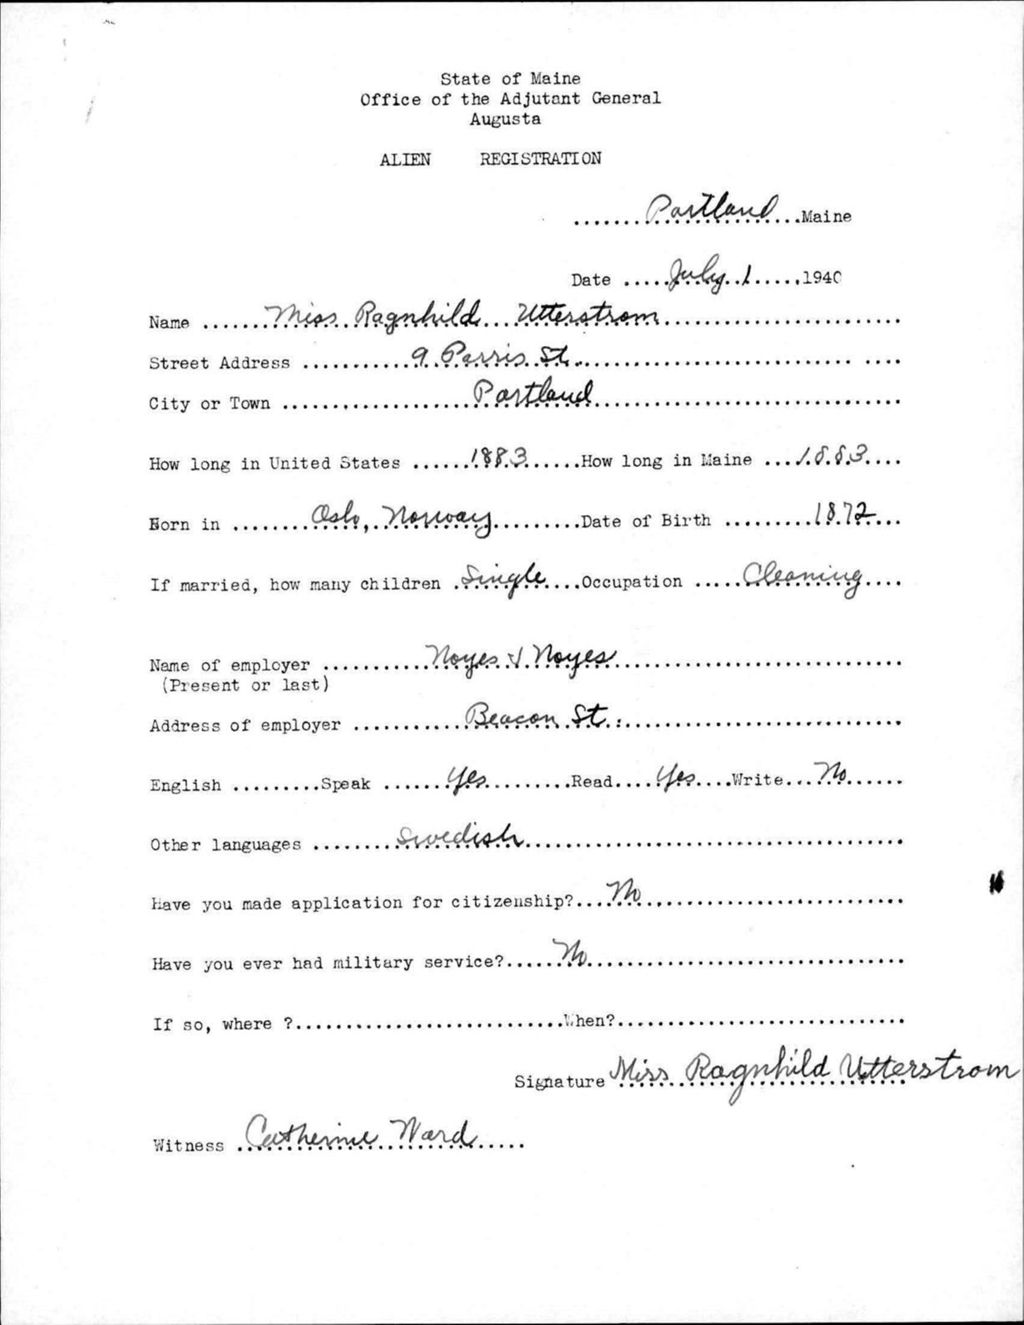 State of Maine
Office of the Adjutant General
Augusta
ALIEN REGISTRATION
.......Portland...Maine
Date .....July 1......1940
Name .......Miss Ragnhild Utterstrom...........................
Street Address ...........9 Parris St.................................
City or Town ...................Portland..................................
How long in United States ......1883......How long in Maine ...1883....
Born in ........Oslo, Norway.........Date of Birth .........1872...
If married, how many children .Single....Occupation .....Cleaning....
Name of employer ...........Noyes & Noyes................................
(Present or last)
Address of employer ............Beacon St...............................
English .........Speak .......Yes..........Read....Yes....Write...No......
Other languages ........Swedish......................................
Have you made application for citizenship?...No...........................
Have you ever had military service?......No................................
If so, where ?...........................When?.............................
Signature Miss Ragnhild Utterstrom
Witness Catherine Ward.....